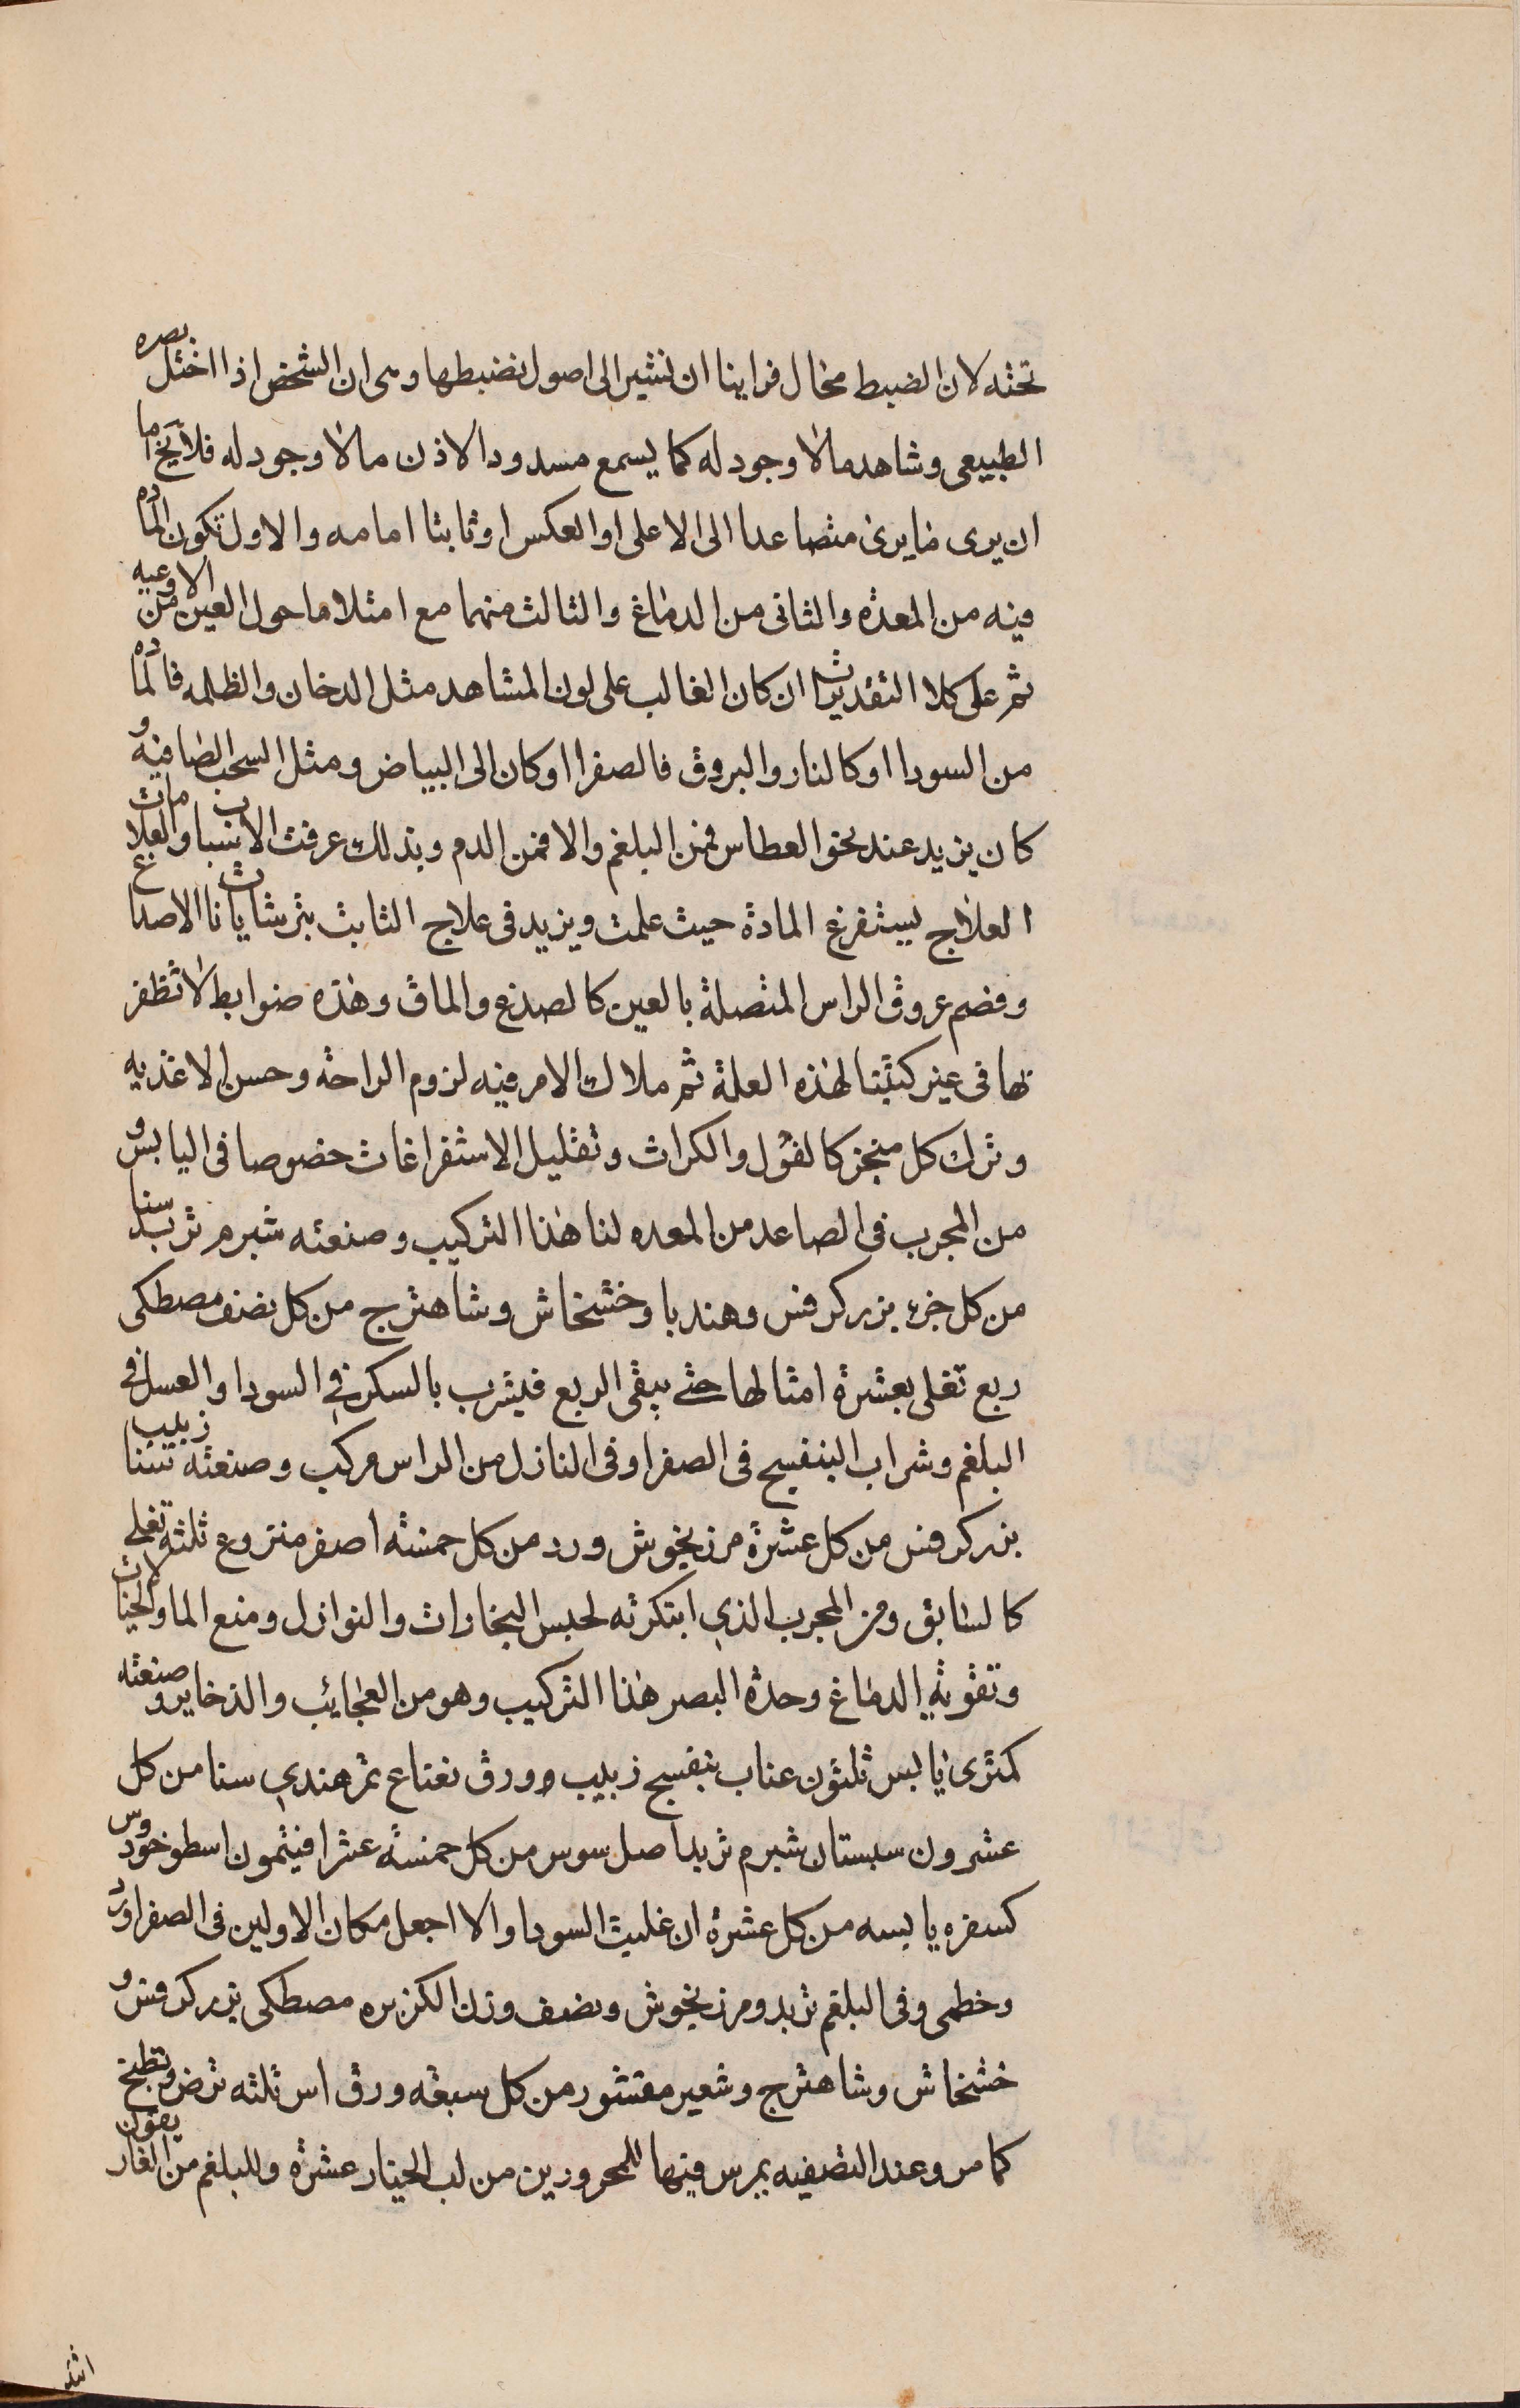 تحته لان الضبط محال فراينا ان نشير الى اصول نضبطها وهى ان الشخص اذا اختل بصره
الطبيعى وشاهد مالا وجود له كما يسمع مسدود الاذن مالا وجود له فلا يخ اما
ان يرى مايرى متصاعدا الى الاعلى او العكس او ثابتا امامه والاول تكون الماده
فيه من المعدة والثانى من الدماغ والثالث منهما مع امتلا ماحول العين من الاوعيه
ثم على كلا التقديرات ان كان الغالب على لون المشاهد مثل الدخان والظلمه فالماده
من السودا او كالنار والبروق فالصفرا او كان الى البياض ومثل السحب الصافيه و
كان يزيد عند نحو العطاس فمن البلغم والا فمن الدم وبذلك عرفت الاسباب والعلامات
العلاج يستفرغ المادة حيث علمت ويزيد فى علاج الثابت بتر شاياتا الاصداغ
وفصم عروق الراس المتصلة بالعين كالصدغ والماق وهذه ضوابط لا تظفر
بها فى غير كتبنا لهذه العلة ثم ملاك الامر فيه لزوم الراحة وحسن الاغذيه
وترك كل مبخر كالفول والكراث وتقليل الاستفراغات خصوصا فى اليابس و
من المجرب فى الصاعد من المعده لنا هذا التركيب وصنعته شبرم تربد سنا
من كل جزء بزر كرفس وهندبا وخشخاش وشاهترج من كل نصف مصطكى
ربع تغلى بعشرة امثالها حتى يبقى الربع فيشرب بالسكر فى السودا والعسل فى
البلغم وشراب البنفسج فى الصفرا وفى النازل من الراس مركب وصنعته سنا زبيب
بزر كرفس من كل عشرة مرزنجوش ورد من كل خمسة اصفر منزوع ثلثة تغلى
كالسابق ومن المجرب الذى ابتكرته لحبس البخارات والنوازل ومنع الما والخيالات
وتقوية الدماغ وحدة البصر هذا التركيب وهو من العجائب والذخاير وصنعته
كمثرى يابس ثلثون عناب بنفسج زبيب وورق نعناع تمر هندى سنا من كل
عشرون سبستان شبرم تربد اصل سوس من كل خمسة عشر افيثمون اسطوخودوس
كسفره يابسه من كل عشرة ان غلبت السودا والا اجعل مكان الاولين فى الصفرا ورد
وخطمى وفى البلغم تربد ومرزنجوش ونصف وزن الكزبره مصطكى بزر كرفس و
خشخاش وشاهترج وشعير مقشور من كل سبعة ورق اس ثلثه ترض وتطبخ
كما مر وعند التصفيه يمرس فيها للمحرورين من لب الخيار عشرة وللبلغم من الغاريقون
اشد